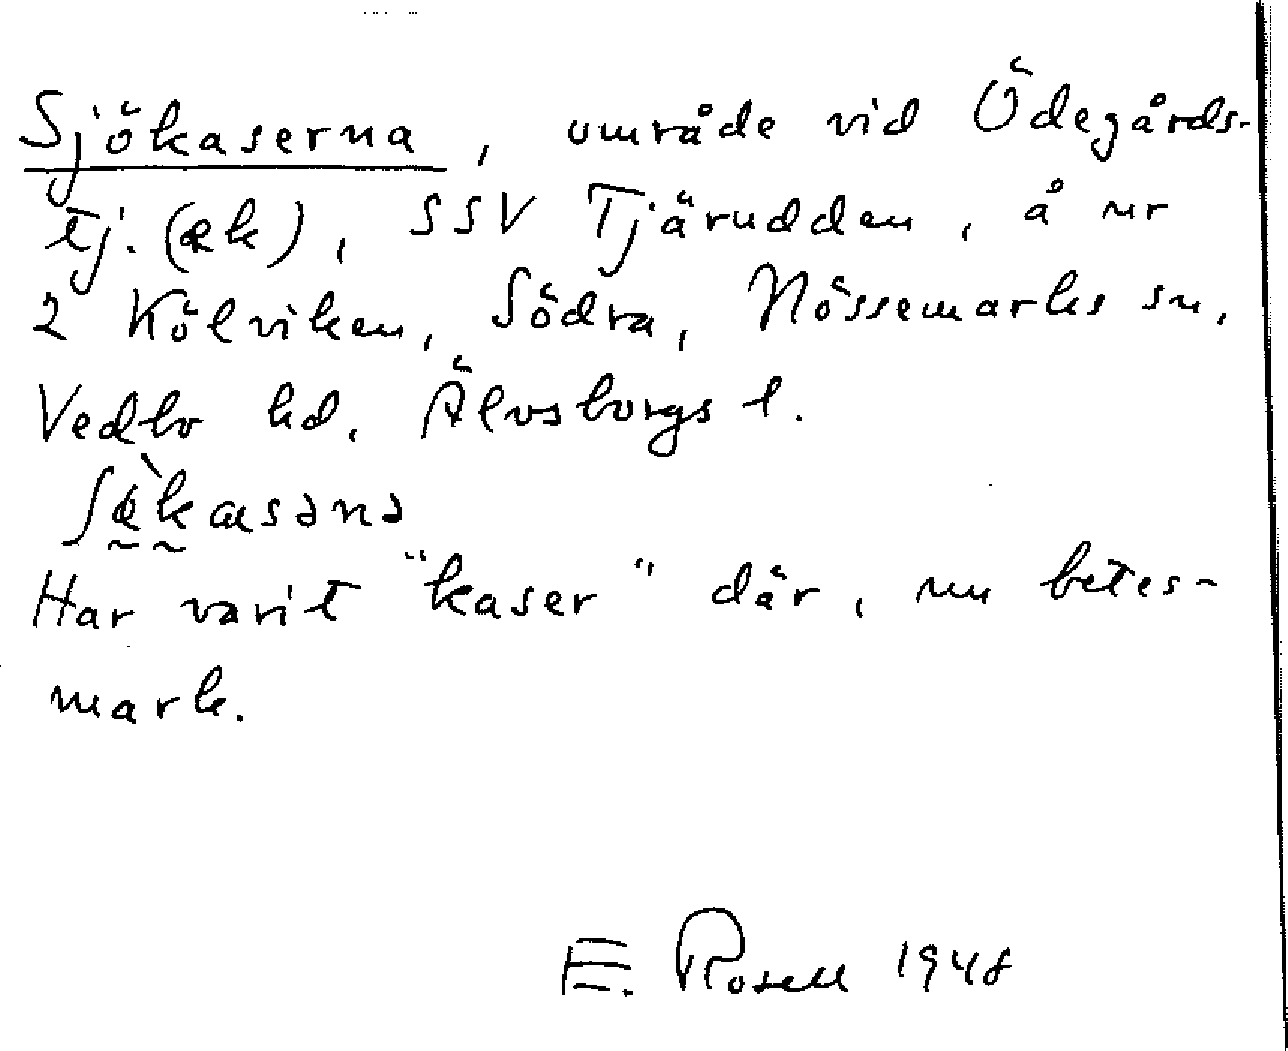 Sjökaserna, område vid Ödegårds-
tj. (ek), SSV Tjärudden, å nr
2 Kölviken, Södra, Nössemarks sn.
Vedbo hd. Älvsborgs l.
Har varit "kaser" där, nu betes-
mark.
E. Rosell 1948